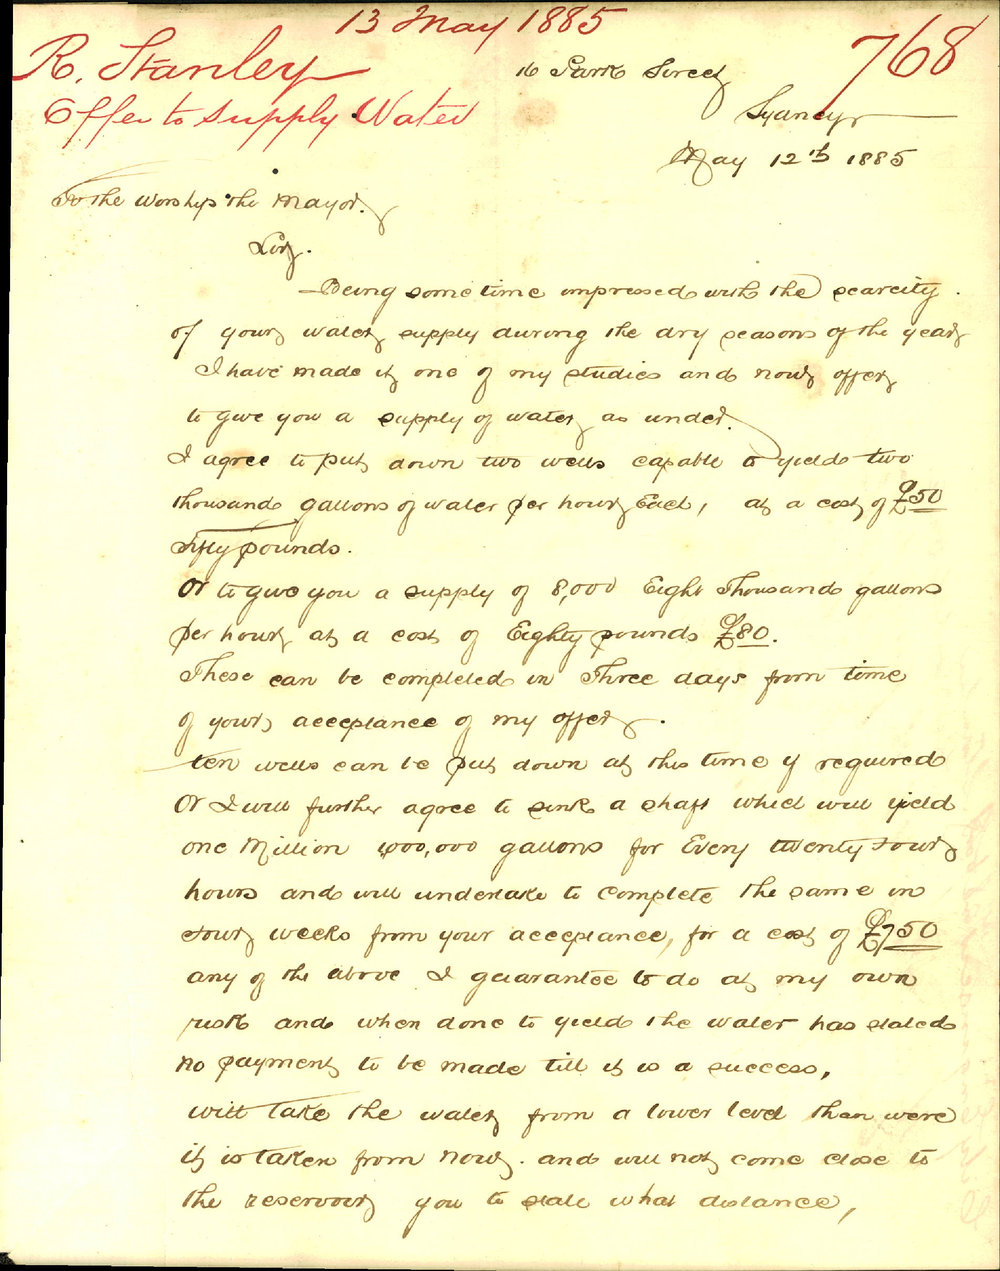 13 May 1885
768
R. Stanley
Offer to supply Water
16 Park Street
Sydney
May 12th 1885
To the Worship the Mayor.
Sir.
Being some time impressed with the scarcity
of your water supply during the dry seasons of the year
I have made it one of my studies and now offer
to give you a supply of water as under.
I agree to put down two wells capable to yield two
thousand gallons of water per hour Each, at a cost of £50
Fifty pounds.
Or to give you a supply of 8,000 Eight Thousand gallons
per hour at a cost of Eighty pounds £80.
These can be completed in Three days from time
of your acceptance of my offer.
ten wells can be put down at this time if required
Or I will further agree to sink a shaft which will yield
one Million 1000,000 gallons for Every twenty four
hours and will undertake to complete the same in
four weeks from your acceptance, for a cost of £750
any of the above I guarantee to do at my own
risk and when done to yield the water has stated
no payment to be made till it is a success,
will take the water from a lower level than were
it is taken from now. and will not come close to
the reservoir you to state what distance,